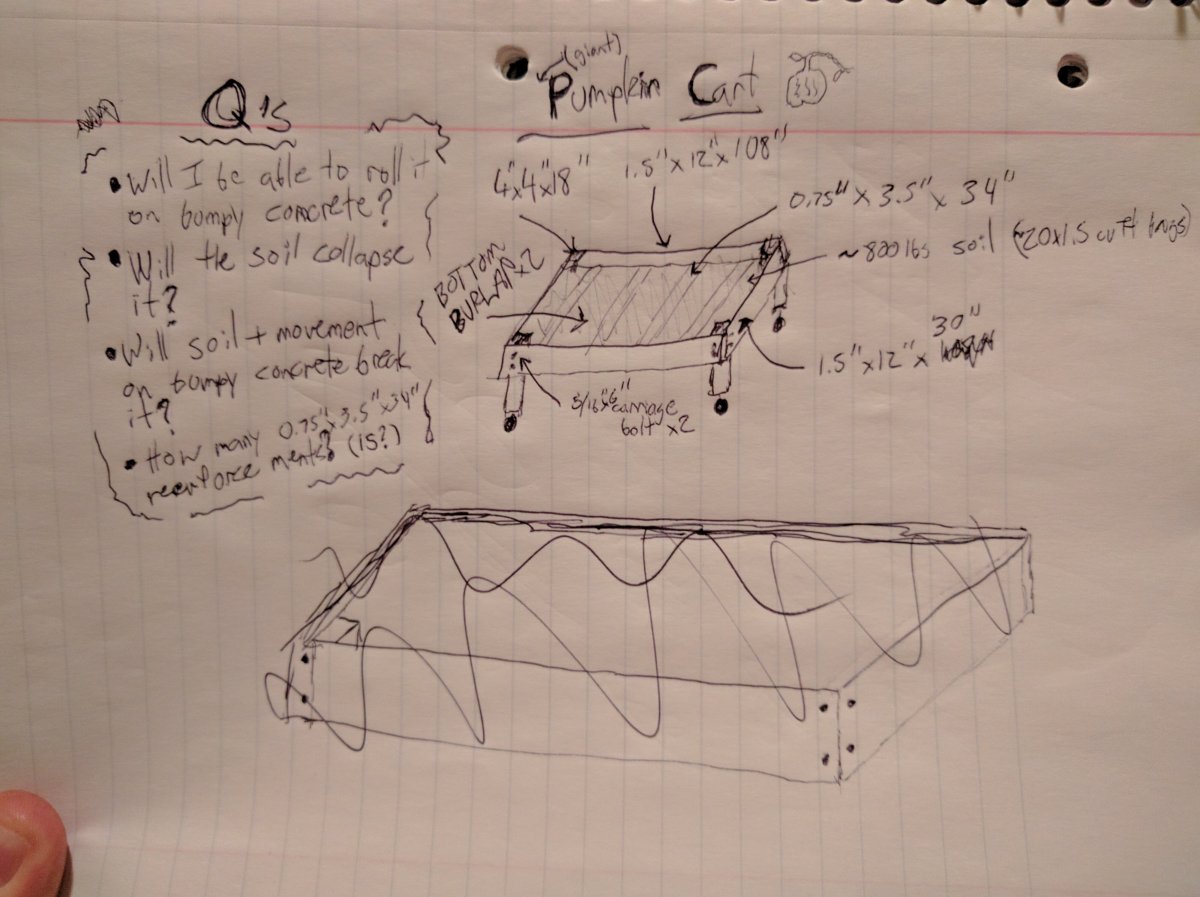 (giant)
Pumpkin Cart
Q's
• Will I be able to roll it
on bumpy concrete?
• Will the soil collapse
it?
• Will soil + movement
on bumpy concrete break
it?
• How many 0.75"x3.5"x34"
reenforcements? (15?)
4"x4"x18"
1.5"x12"x108"
0.75" x 3.5" x 34"
~800 lbs soil (~20x1.5 cu ft bags)
BOTTOM
BURLAP x2
1.5"x12"x 30"
5/16"x6"
carriage
bolt x2